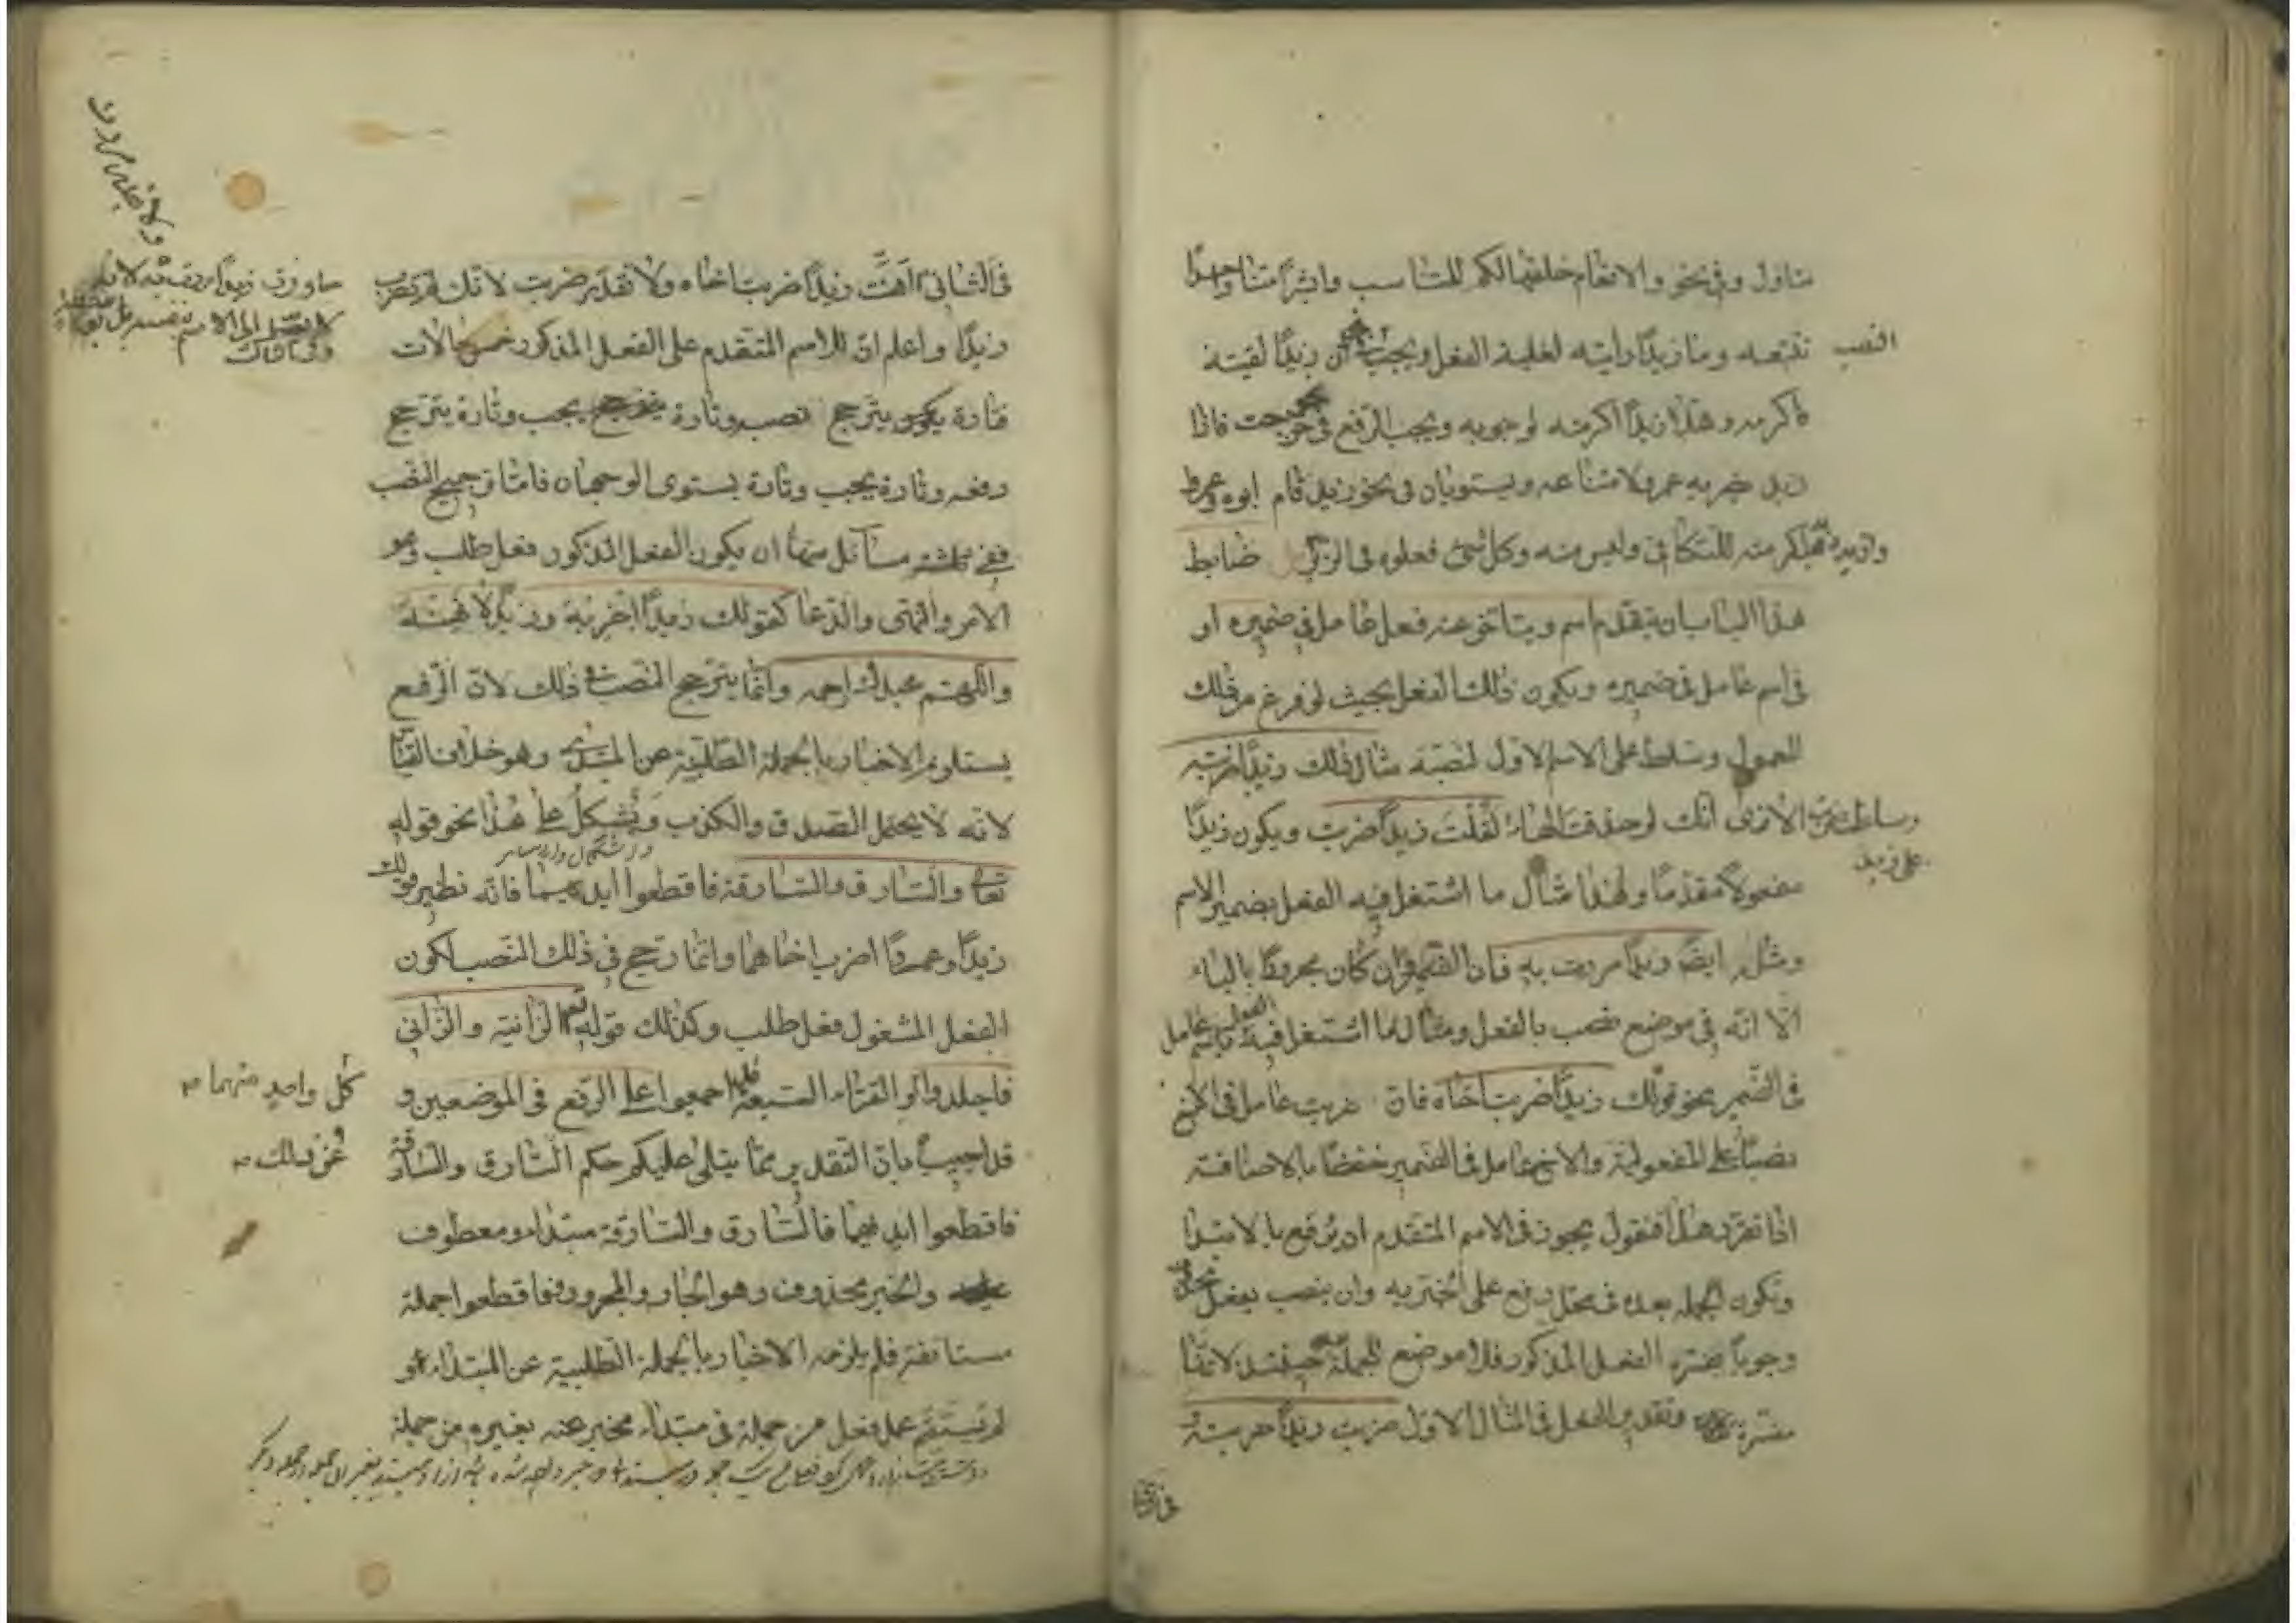 متاول وفي نحو والانعام خلقها لكم للتناسب وابشرا منا واحدا
نتبعه وما زيدا رايته لغلبة الفعل ويجب في نحو ان زيدا لقيته
النصب
فاكرمه وهلا زيدا اكرمته لوجوبه ويجب الرفع في نحو خرجت فاذا
زيد ضربه عمرو لامتناعه ويستويان في نحو زيد قام ابوه وعمرو
اكرمته للتكافئ وليس منه وكل شئ فعلوه في الزبر ضابط
هذا الباب ان يتقدم اسم ويتاخر عنه فعل عامل في ضميره او
في اسم عامل في ضميره ويكون ذلك الفعل بحيث لو فرغ من ذلك
المعمول وسلط على الاسم الاول لنصبه مثال ذلك زيدا ضربته
الا ترى انك لو حذفت الهاء لقلت زيدا ضربت ويكون زيدا
وسلطت ضربت
على زيد
مفعولا مقدما وهذا مثال ما اشتغل فيه الفعل بضمير الاسم
ومثله ايضا زيدا مررت به فان الضمير وان كان مجرورا بالباء
الا انه في موضع نصب بالفعل ومثال ما اشتغل فيه الفعل باسم عامل
في الضمير نحو قولك زيدا ضربت اخاه فان ضربت عامل في الاخ
نصبا على المفعولية والاخ عامل في الضمير خفضا بالاضافة
اذا تقرر هذا فنقول يجوز في الاسم المتقدم ان يرفع بالابتدا
وتكون الجملة بعده في محل رفع على الخبرية وان ينصب بفعل محذوف
وجوبا يفسره الفعل المذكور فلا موضع للجملة حينئذ لانها
مفسرة وتقدير الفعل في المثال الاول ضربت زيدا ضربته و
في الثاني
في الثاني اهنت زيدا ضربت اخاه ولا تقدير ضربت لانك لم تضرب
زيدا واعلم ان للاسم المتقدم على الفعل المذكور خمس حالات
فتارة يترجح نصبه وتارة يجب وتارة يترجح
رفعه وتارة يجب وتارة يستوى الوجهان فاما ترجيح النصب
ففي ثلثة مسائل منها ان يكون الفعل المذكور فعل طلب وهو
الامر والنهى والدعا كقولك زيدا اضربه وزيدا لا تهنه
واللهم عبدك ارحمه وانما يترجح النصب في ذلك لان الرفع
يستلزم الاخبار بالجملة الطلبية عن المبتدا وهو خلاف القياس
لانه لا يحتمل الصدق والكذب ويشكل على هذا نحو قوله
تعالى والسارق والسارقة فاقطعوا ايديهما فانه نظير قولك
زيدا وعمروا اضرب اخاهما وانما رجح في ذلك النصب لكون
الفعل المشغول فعل طلب وكذلك قوله تعالى الزانية والزانى
فاجلدوا والقراء السبعة قد اجمعوا على الرفع في الموضعين و
كل واحد منهما
قد اجيب بان التقدير مما يتلى عليكم حكم السارق والسارقة
عن ذلك
فاقطعوا ايديهما فالسارق والسارقة مبتداء ومعطوف
عليه والخبر محذوف وهو الجار والمجرور فاقطعوا جملة
مستانفة فلم يلزم الاخبار بالجملة الطلبية عن المبتداء و
لم يستقم عمل فعل من جملة في مبتداء مخبر عنه بغيره من جملة